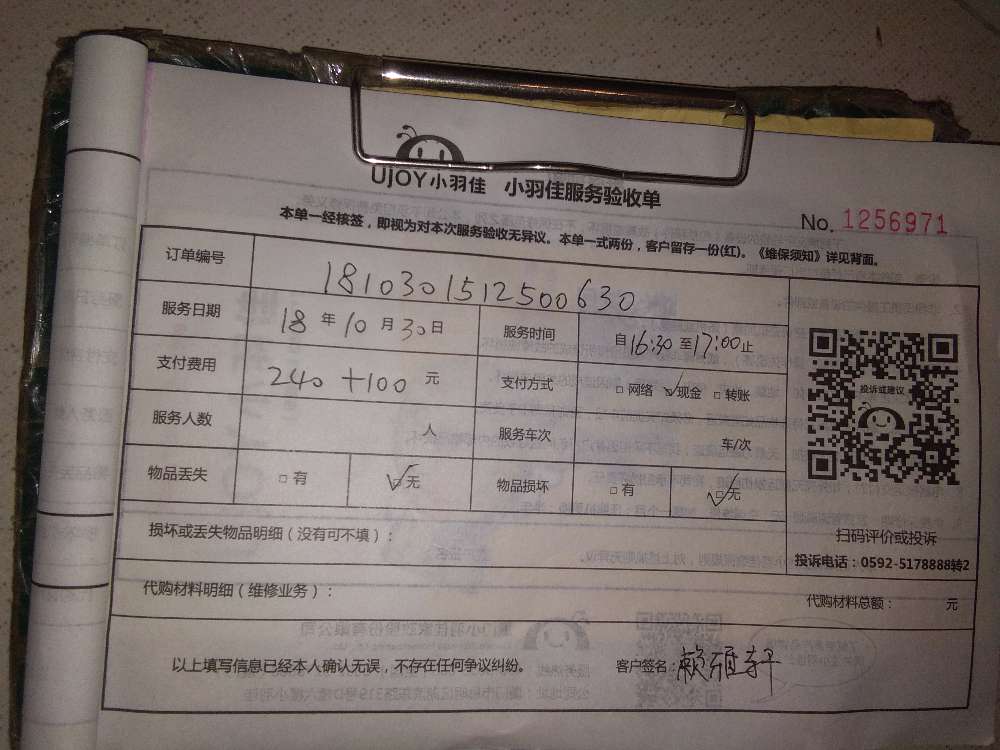 UJOY小羽佳 小羽佳服务验收单
No. 1256971
本单一经核签，即视为对本次服务验收无异议。本单一式两份，客户留存一份(红)。《维保须知》详见背面。
订单编号 1810301512500630
服务日期 18 年 10 月 30 日 服务时间 自 16:30 至 17:00 止
支付费用 240 +100 元 支付方式 □ 网络 ☑ 现金 □ 转账
服务人数 人 服务车次 车/次
物品丢失 □ 有 ☑ 无 物品损坏 □ 有 ☑ 无
投诉或建议
扫码评价或投诉
投诉电话：0592-5178888转2
损坏或丢失物品明细（没有可不填）：
代购材料明细（维修业务）： 代购材料总额： 元
以上填写信息已经本人确认无误，不存在任何争议纠纷。 客户签名：赖雅轩